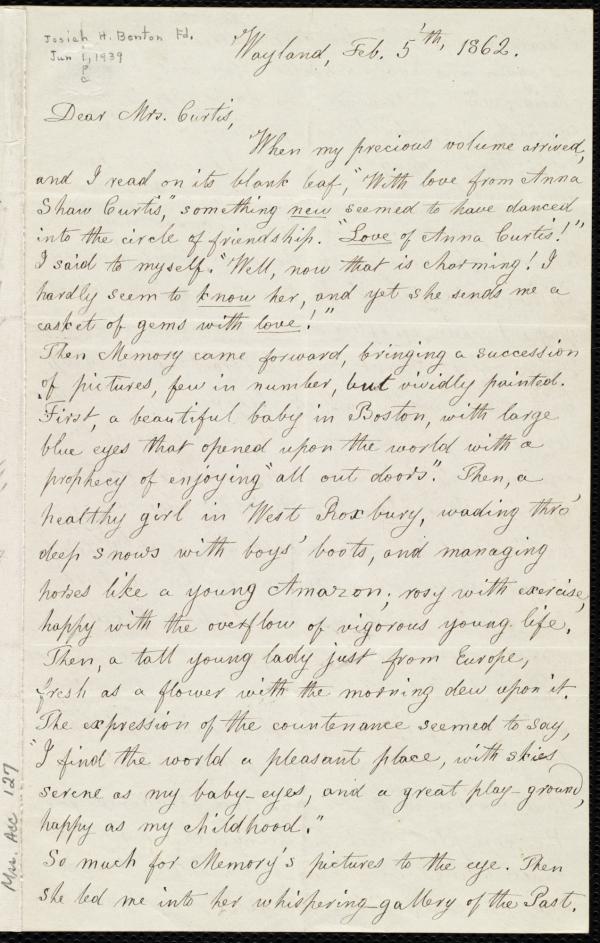 Josiah H. Benton Fd.
Jun 1, 1939
P
c
Wayland, Feb. 5th, 1862.
Dear Mrs. Curtis,
When my precious volume arrived,
and I read on its blank leaf, "With love from Anna
Shaw Curtis," something new seemed to have danced
into the circle of friendship. "Love of Anna Curtis!"
I said to myself. "Well, now that is charming! I
hardly seem to know her, and yet she sends me a
casket of gems with love!"
Then Memory came forward, bringing a succession
of pictures, few in number, but vividly painted.
First, a beautiful baby in Boston, with large
blue eyes that opened upon the world with a
prophecy of enjoying "all out doors". Then, a
healthy girl in West Roxbury, wading thro'
deep snows with boys' boots, and managing
horses like a young Amazon; rosy with exercise,
happy with the overflow of vigorous young life.
Then, a tall young lady just from Europe,
fresh as a flower with the morning dew upon it.
The expression of the countenance seemed to say,
"I find the world a pleasant place, with skies
serene as my baby-eyes, and a great play-ground,
happy as my childhood."
So much for Memory's pictures to the eye. Then
she led me into her whispering-gallery of the Past.
Mss. Acc. 127